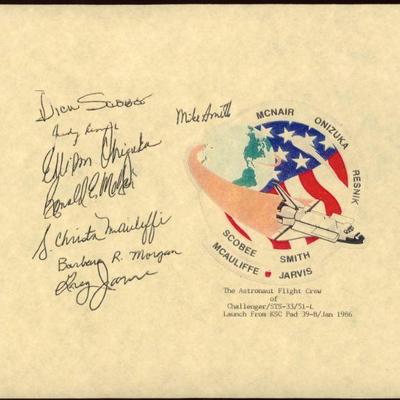 Dick Scobee
Mike Smith
Judy Resnik
Ellison Onizuka
Ronald E. McNair
S. Christa McAuliffe
Barbara R. Morgan
Greg Jarvis
MCNAIR
ONIZUKA
RESNIK
SCOBEE
SMITH
MCAULIFFE
JARVIS
The Astronaut Flight Crew
of
Challenger/STS-33/51-L
Launch From KSC Pad 39-B/Jan 1986